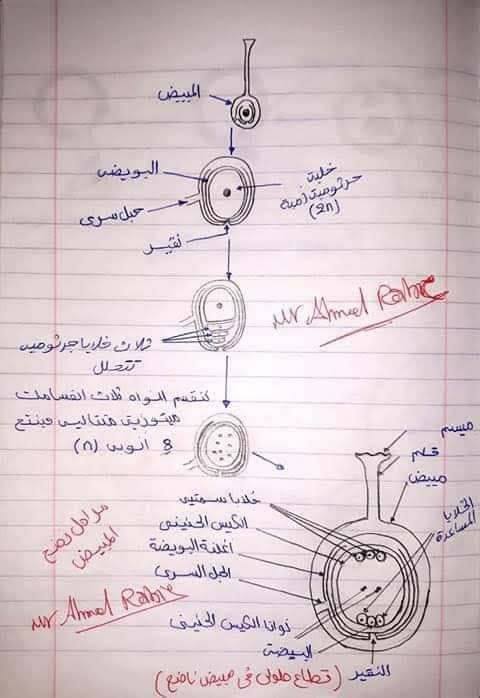 المبيض
البويضه
خلية
جرثومية أمية
(2n)
حبل سرى
نقير
Mr Ahmed Rabie
ثلاث خلايا جرثوميه
تتحلل
تنقسم النواه ثلاث انقسامات
ميتوزيه متتاليه فينتج
8 انويه (n)
ميسم
قلم
مبيض
الخلايا
المساعدة
خلايا سمتيه
الكيس الجنينى
اغلفة البويضة
الحبل السرى
نواتا الكيس الجنينى
البيضة
النقير
مراحل نضج
المبيض
Mr Ahmed Rabie
(قطاع طولى فى مبيض ناضج)